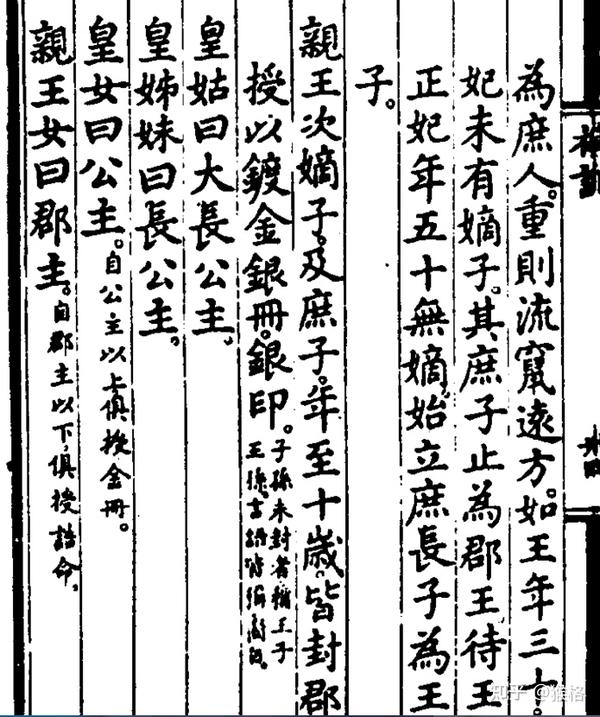 為庶人。重則流竄遠方。如王年三十。
妃未有嫡子。其庶子止為郡王待王
正妃年五十無嫡。始立庶長子為王
子。
親王次嫡子。及庶子。年至十歲。皆封郡
授以鍍金銀冊。銀印。子孫未封者稱王子
王孫。言語皆稱
皇姑曰大長公主。
皇姊妹曰長公主。
皇女曰公主。自公主以上俱授金冊。
親王女曰郡主。自郡主以下。俱授誥命。
知乎